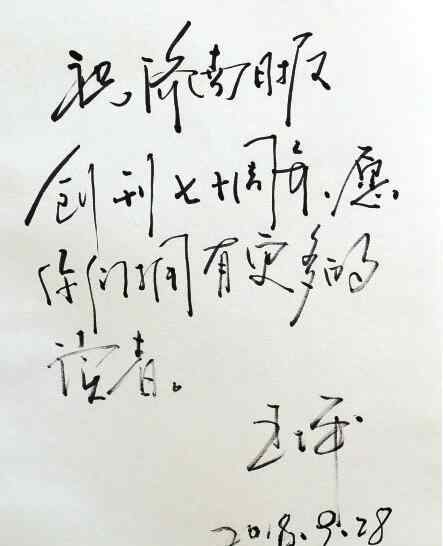 祝济南时报
创刊七十周年、愿
你们拥有更多的
读者。
王
2018.9.28